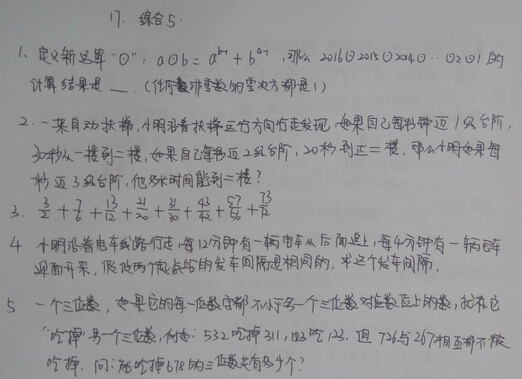 17. 综合5.
1、定义新运算"⊙": a⊙b = a^{b-1} + b^{a-1}, 那么 2016⊙2015⊙2014⊙…⊙2⊙1 的
计算结果是 __. (任何非零数的零次方都是1)
2. 一架自动扶梯, 小明沿着扶梯运行方向行走发现, 如果自己每秒钟迈1级台阶,
30秒从一楼到二楼, 如果自己每秒迈2级台阶, 20秒到二楼. 那么小明如果每
秒迈3级台阶, 他多长时间能到二楼?
3. 3/2 + 7/6 + 13/12 + 21/20 + 31/30 + 43/42 + 57/56 + 73/72
4 小明沿着电车线路行走, 每12分钟有一辆电车从后面追上, 每4分钟有一辆电车
迎面开来, 假设两个起点站的发车间隔是相同的, 求这个发车间隔.
5 一个三位数, 如果它的每一位数字都不小于另一个三位数对应数位上的数, 就称它
"吃掉"另一个三位数, 例如: 532吃掉311, 123吃123, 但726与267相互都不能
吃掉. 问: 能吃掉678的三位数共有多少个?